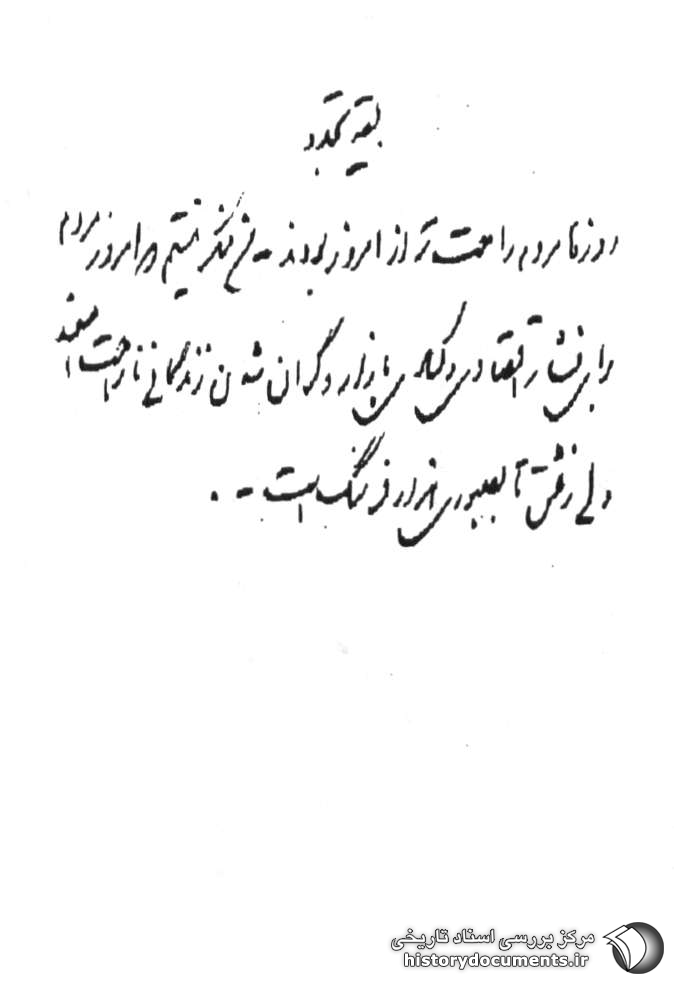 بقیه
روزها مردم راحت تر از امروز بودند - من منکر نیستم که امروز مردم
برای فشار اقتصادی و کسادی بازار و گران شدن زندگانی ناراحت هستند
ولی رفتن تا بهبودی از در فرهنگ است - .
مرکز بررسی اسناد تاریخی
historydocuments.ir